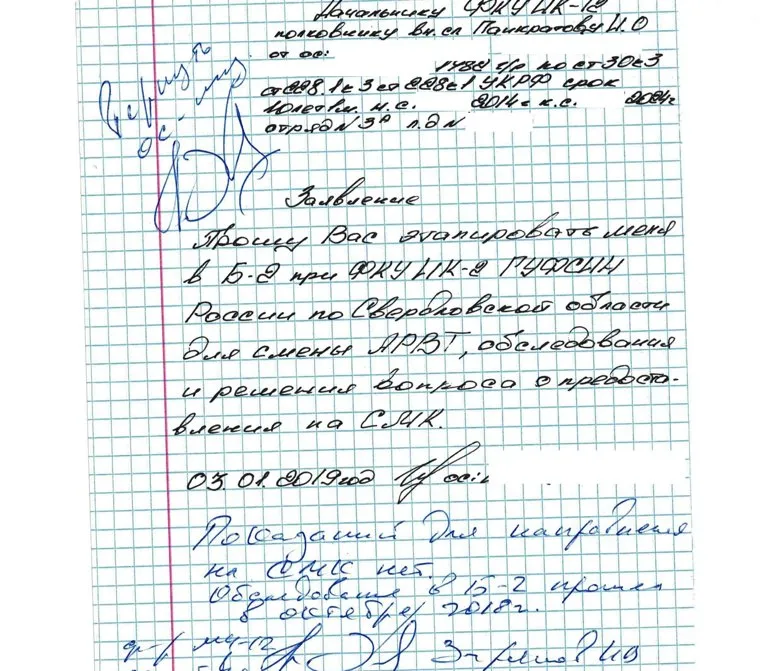 Начальнику ФКУ ИК-12
полковнику вн.сл Панкратову И.О
от ос:
1988 г/р по ст 30 ч 3
ст 228.1 ч 3 ст 228 ч 1 УК РФ срок
н.с. 2014г к.с. 2024г
отряд № 3 л.д №
Заявление
Прошу Вас этапировать меня
в Б-2 при ФКУ ИК-2 ГУФСИН
России по Свердловской области
для смены АРВТ, обследования
и решения вопроса о предоста-
вления на СМК.
03.01.2019год ос:
Показаний для направления
на СМК нет.
Обследование в Б-2 прошел
в октябре 2018г.